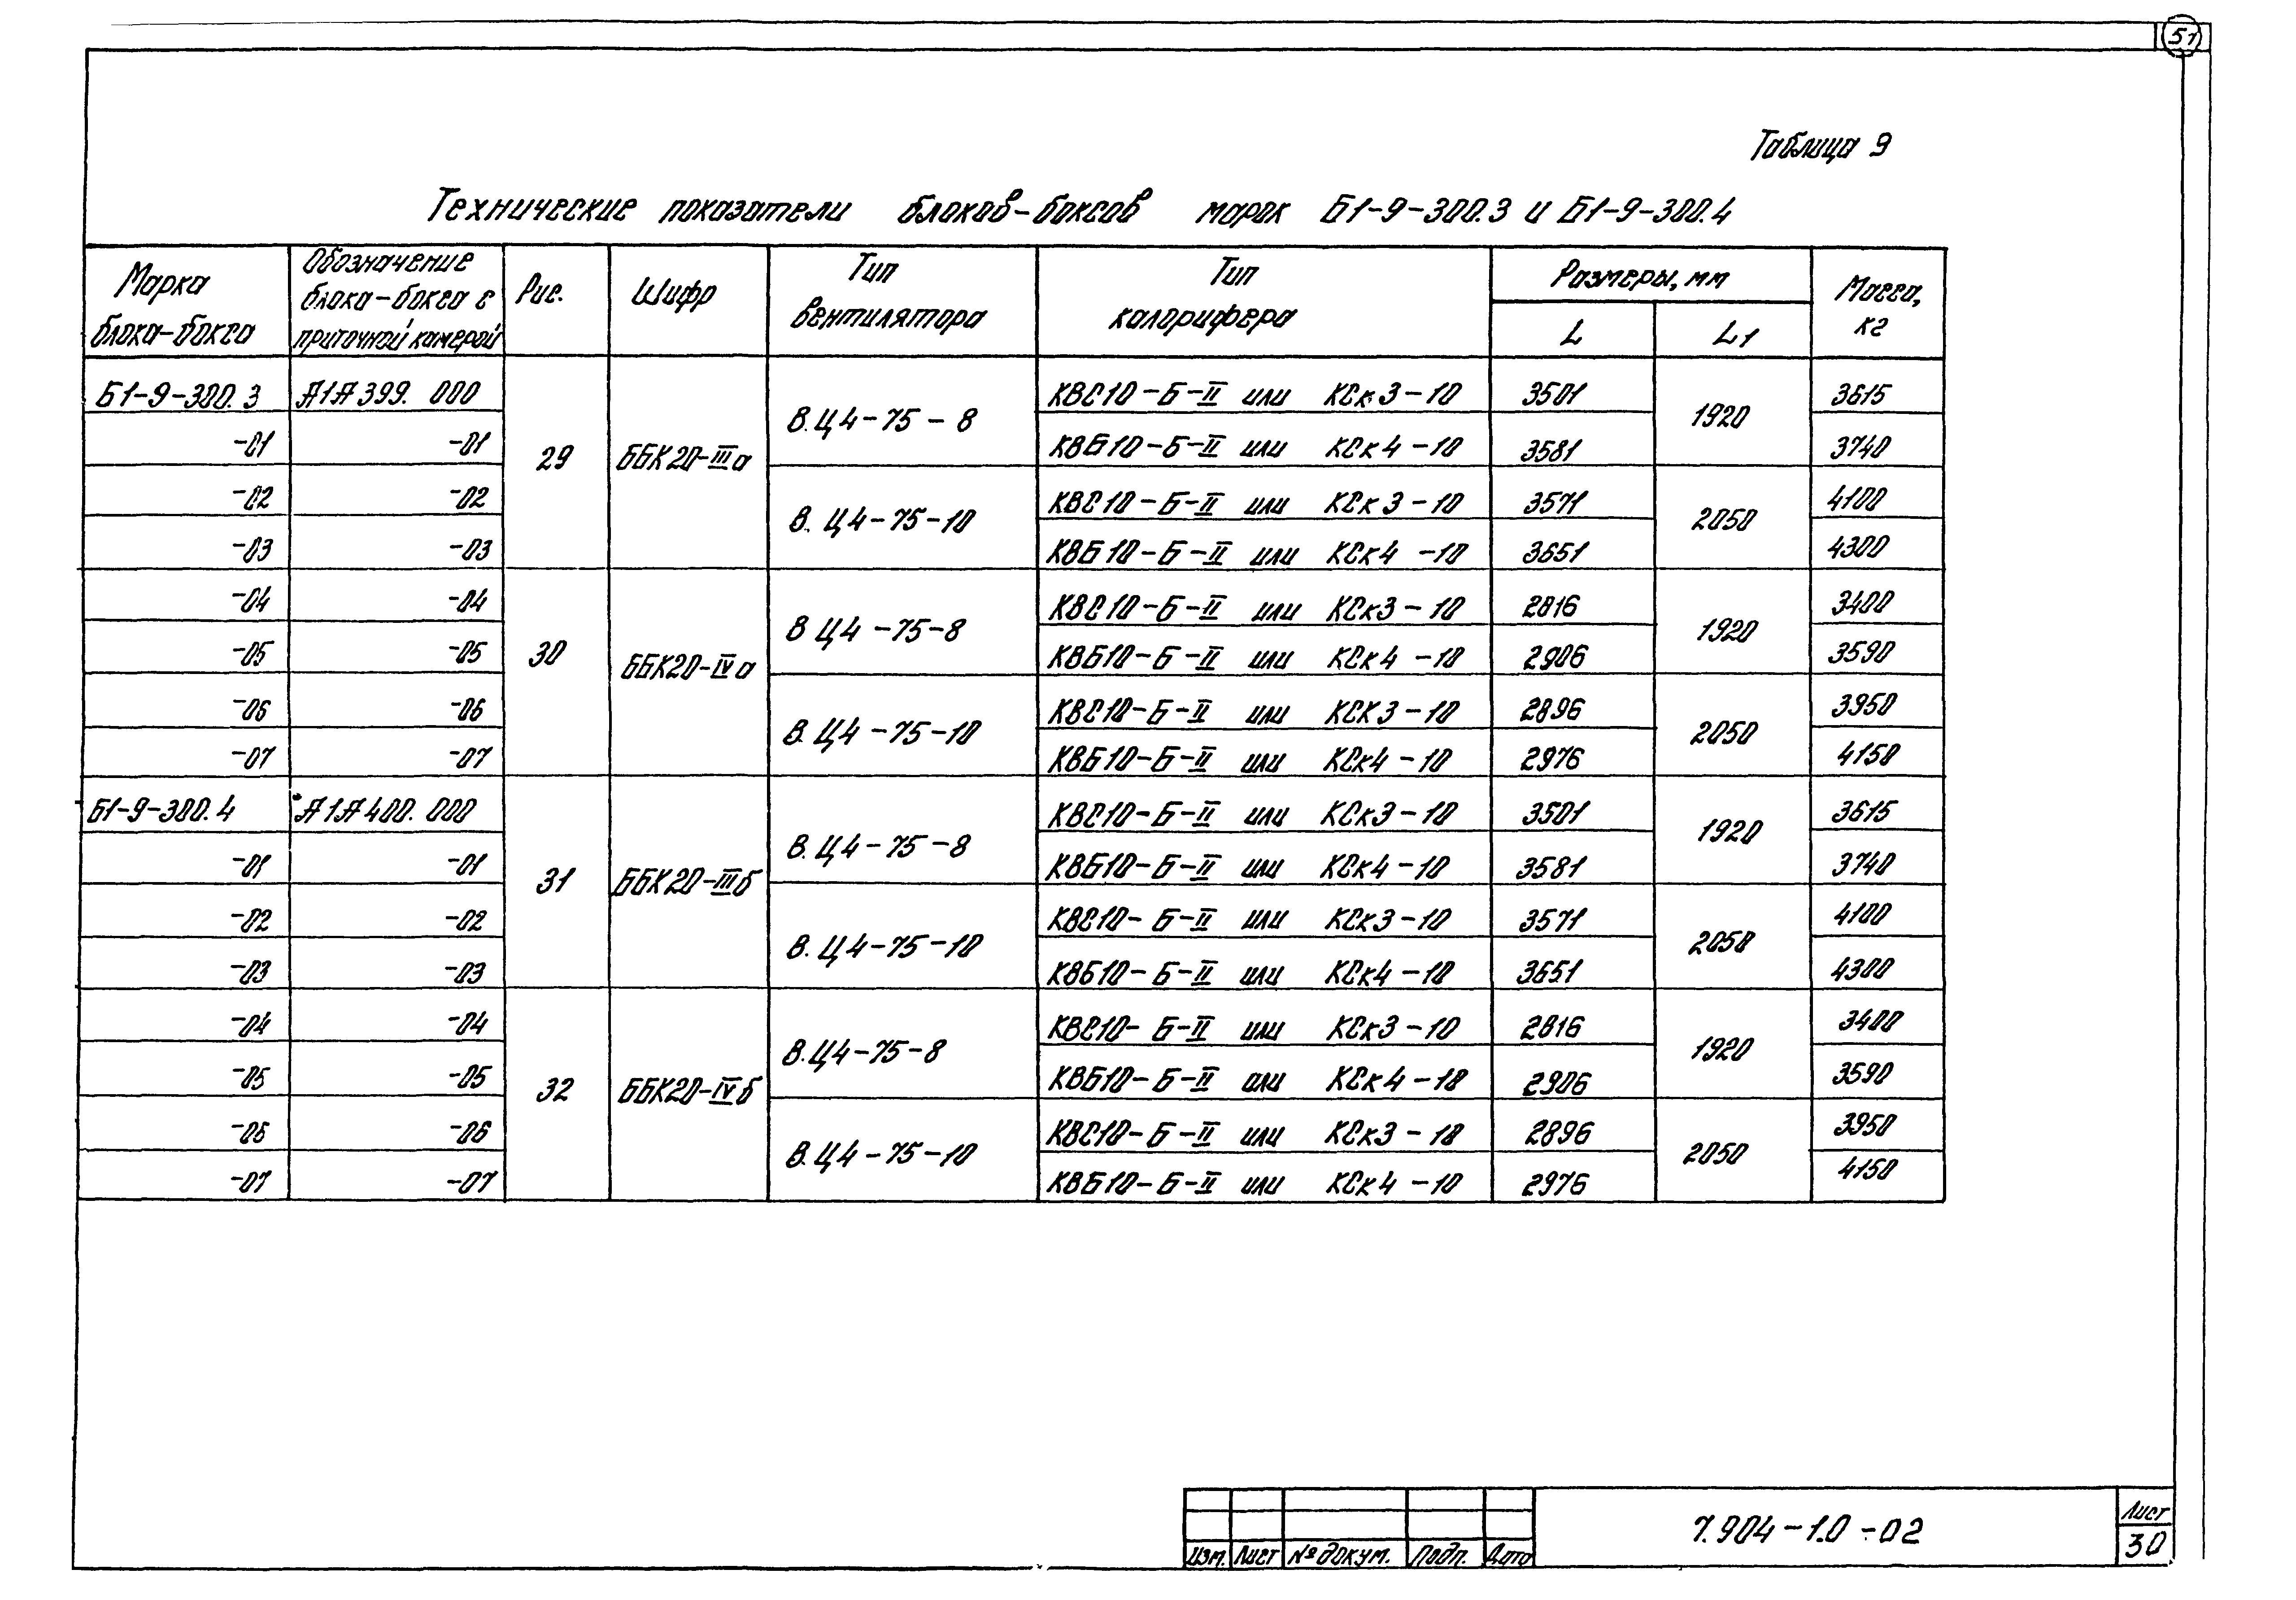 51
Таблица 9
Технические показатели блоков-боксов марок Б1-9-300.3 и Б1-9-300.4
Марка блока-бокса
Обозначение блока-бокса с приточной камерой
Рис.
Шифр
Тип вентилятора
Тип калорифера
Размеры, мм
L
L1
Масса, кг
Б1-9-300.3 А1А399.000 29 ББК20-IIIа В.Ц4-75-8 КВС10-Б-II или КСк3-10 3501 1920 3615
-01 -01 КВБ10-Б-II или КСк4-10 3581 3740
-02 -02 В.Ц4-75-10 КВС10-Б-II или КСк3-10 3571 2050 4100
-03 -03 КВБ10-Б-II или КСк4-10 3651 4300
-04 -04 30 ББК20-IVа В Ц4-75-8 КВС10-Б-II или КСк3-10 2816 1920 3400
-05 -05 КВБ10-Б-II или КСк4-10 2906 3590
-06 -06 В.Ц4-75-10 КВС10-Б-II или КСк3-10 2896 2050 3950
-07 -07 КВБ10-Б-II или КСк4-10 2976 4150
Б1-9-300.4 А1А400.000 31 ББК20-IIIб В.Ц4-75-8 КВС10-Б-II или КСк3-10 3501 1920 3615
-01 -01 КВБ10-Б-II или КСк4-10 3581 3740
-02 -02 В.Ц4-75-10 КВС10-Б-II или КСк3-10 3571 2050 4100
-03 -03 КВБ10-Б-II или КСк4-10 3651 4300
-04 -04 32 ББК20-IVб В.Ц4-75-8 КВС10-Б-II или КСк3-10 2816 1920 3400
-05 -05 КВБ10-Б-II или КСк4-10 2906 3590
-06 -06 В.Ц4-75-10 КВС10-Б-II или КСк3-10 2896 2050 3950
-07 -07 КВБ10-Б-II или КСк4-10 2976 2050 4150
Изм. Лист № докум. Подп. Дата
7.904-1.0-02
Лист
30